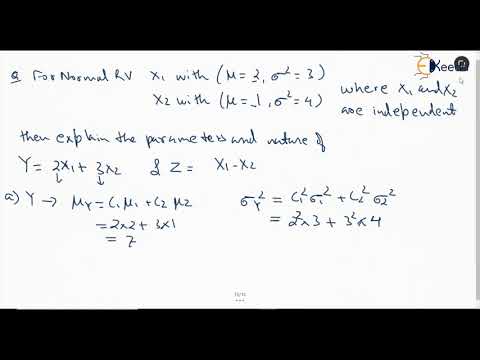 Q For Normal RV X1 with (μ = 2, σ² = 3)
X2 with (μ = 1, σ² = 4)
where X1 and X2
are independent
then explain the parameters and nature of
Y = 2X1 + 3X2 & Z = X1 - X2
a) Y → μY = C1 μ1 + C2 μ2
= 2x2 + 3x1
= 7
σY² = C1² σ1² + C2² σ2²
= 2² x 3 + 3² x 4